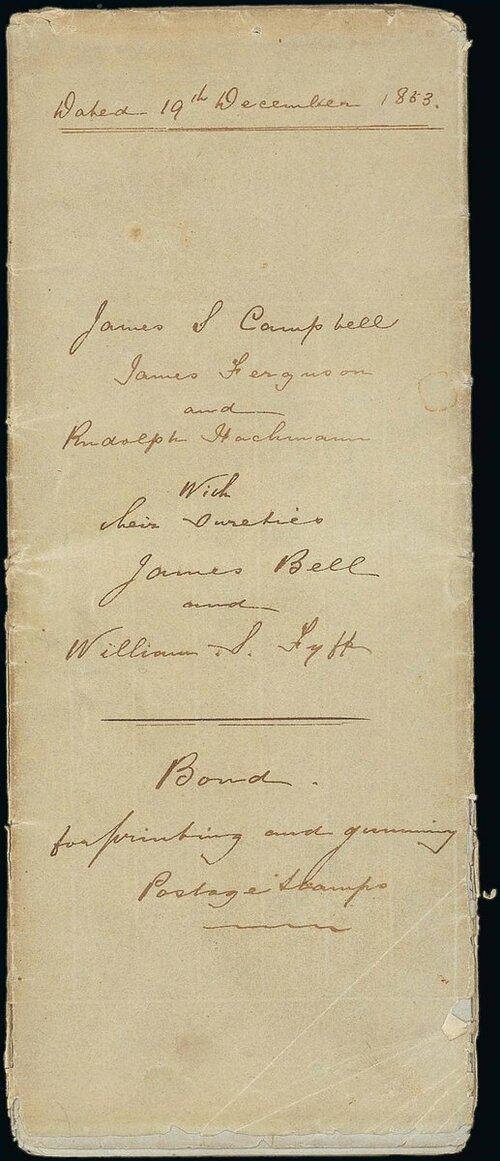 Dated 19th December 1853.
James S Campbell
James Ferguson
and
Rudolph Hachmann
With
their Sureties
James Bell
and
William S. Fyffe
Bond.
for printing and gumming
Postage Stamps